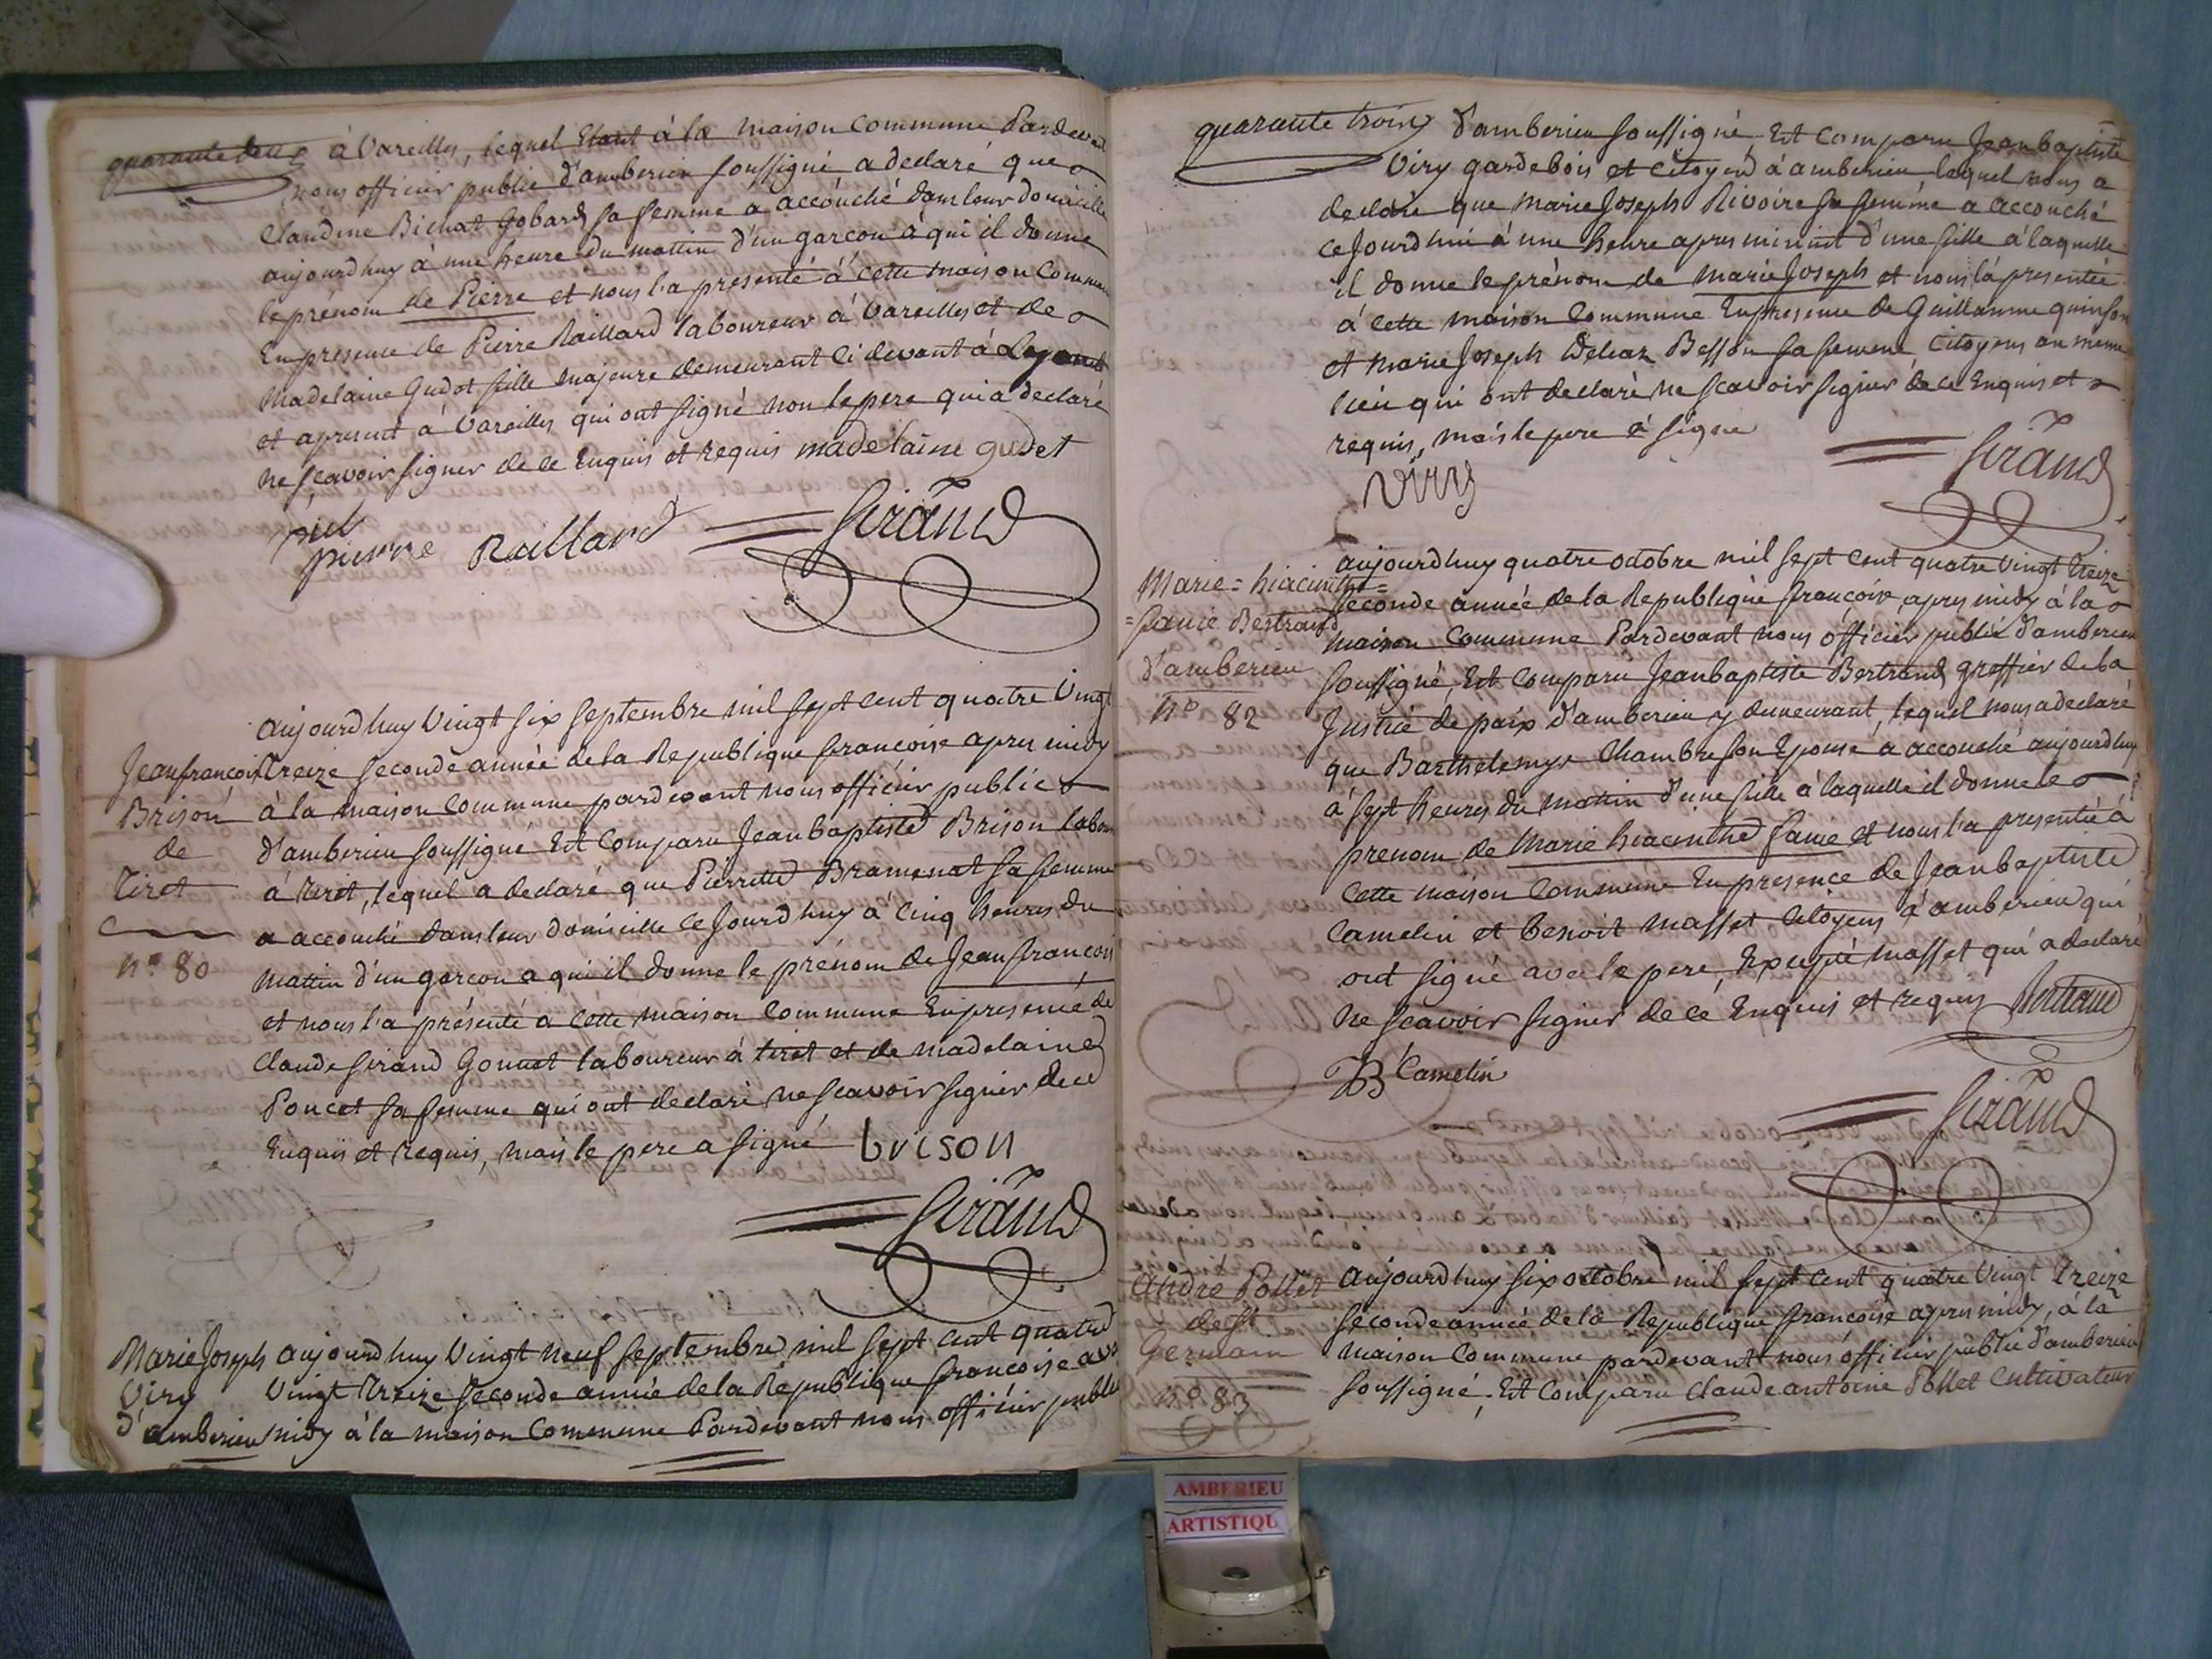 quarante deux à Vareilles, lequel Etant à la maison Commune Pardevant
nous officier public d'amberieu soussigné a declaré que
Claudine Bichat Gobard sa femme a accouché dans leur domicille
aujourd huy à une heure du mattin d'un garcon à qui il donne
le prénom de Pierre et nous l'a presenté à cette maison Commune
En presence de Pierre Raillard laboureur à Vareilles et de
Madelaine Gudot fille majeure demeurant ci devant à
et apresent à Vareilles qui ont signé non le pere qui a declaré
ne scavoir signer de ce Enquis et requis madelaine gudet
pierre Raillard Sirand
aujourd huy Vingt six septembre mil sept cent quatre Vingt
Jean françois Treize seconde année de la Republique francoise apres midy
Brison à la maison Commune pardevant nous officier public
de d'amberieu soussigné Est Comparu Jean baptiste Brison labour
Tiret à tiret, lequel a declaré que Pierrette Bramenat sa femme
a accouché dans leur domicille ce Jourd huy à cinq heures du
n° 80 mattin d'un garcon a qui il donne le prénom de Jean francois
et nous l'a présenté à cette maison Commune En presence de
Claude sirand Gonnet laboureur à tiret et de madelaine
Poncet sa femme qui ont declaré ne scavoir signer de ce
Enquis et requis, mais le pere a signé brison
Sirand
Marie Joseph aujourd huy Vingt neuf septembre mil sept cent quatre
Viry Vingt Treize seconde année de la Republique francoise
d'amberieu midy à la maison Commune Pardevant nous officier public
quarante trois d'amberieu soussigné, Est Comparu Jean baptiste
Viry garde bois et citoyen à amberieu, lequel nous a
declaré que marie Joseph Rivoire sa femme a accouché
ce Jourd hui à une heure apres minuit d'une fille à laquelle
il donne le prénom de marie Joseph et nous l'à presentée
à cette maison Commune En presence de Guillaume quinson
et marie Joseph Besson sa femme, Citoyens au meme
lieu qui ont declaré ne scavoir signer de ce Enquis et
requis, mais le pere à signé
viry Sirand
aujourd huy quatre octobre mil sept cent quatre Vingt treize
Marie = hiacinthe = seconde année de la Republique francoise, apres midy à la
= Bertrand maison Commune Pardevant nous officier public d'amberieu
d'amberieu soussigné, Est Comparu Jean baptiste Bertrand greffier de la
n° 82 Justice de paix d'amberieu y demeurant, lequel nous a declaré
que Barthelemye Chambre son Epouse a accouché aujourd huy
à sept heures du mattin d'une fille à laquelle il donne le
prenom de Marie hiacinthe et nous l'a presentée à
cette maison Commune En presence de Jean baptiste
Camelin et benoit masset Citoyens à amberieu qui
ont signé avec le pere, Excepté masset qui a declaré
ne scavoir signer de ce Enquis et requis Bertrand
JB Camelin
Sirand
andré Pollet aujourd huy six octobre mil sept cent quatre Vingt treize
de st. seconde année de la Republique francoise apres midy, à la
Germain maison Commune pardevant nous officier public d'amberieu
n° 83 soussigné, Est Comparu Claude antoine Pollet Cultivateur
AMBERIEU
ARTISTIQU